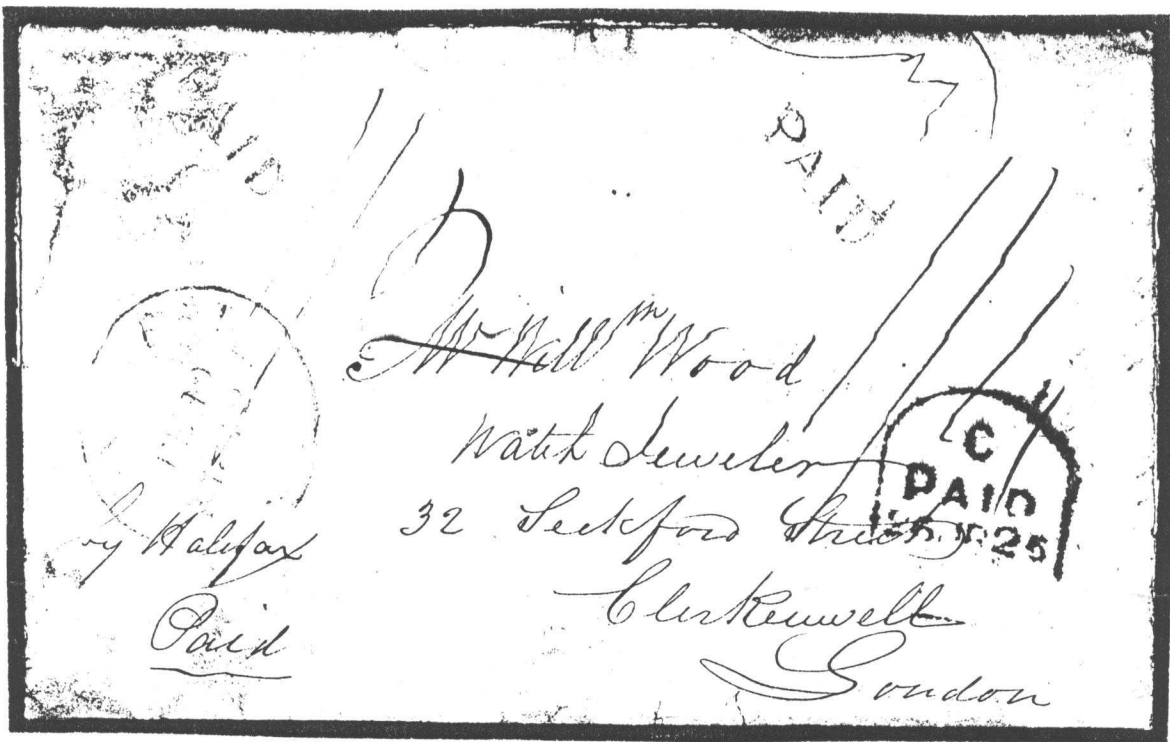 PAID
PAID
Mr Will^m Wood
Watch Jeweler
32 Seckford Street
Clerkenwell
London
by Halifax
Paid
C
PAID
25